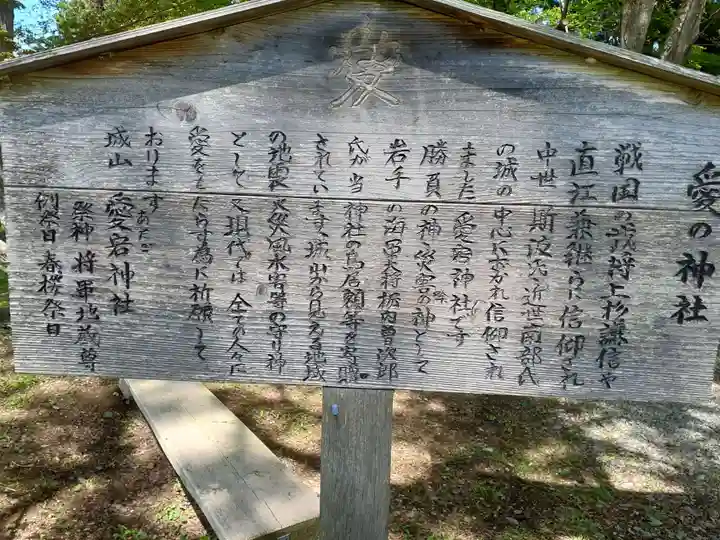 愛の神社
戦国の武将上杉謙信や
直江兼継らに信仰され
中世 斯波氏 近世 南部氏
の城の中心におかれ信仰され
ました 愛宕神社です
勝負の神 災害の神として
岩手の海軍大将栃内曽次郎
氏が当神社の鳥居額等を寄贈
されています 城山から見える地域
の地震 火災 風水害等の守り神
として 又現代では 全ての人々に
愛をもたらす為に祈願して
おります
城山 愛宕神社
祭神 将軍地蔵尊
例祭日 春桜祭日